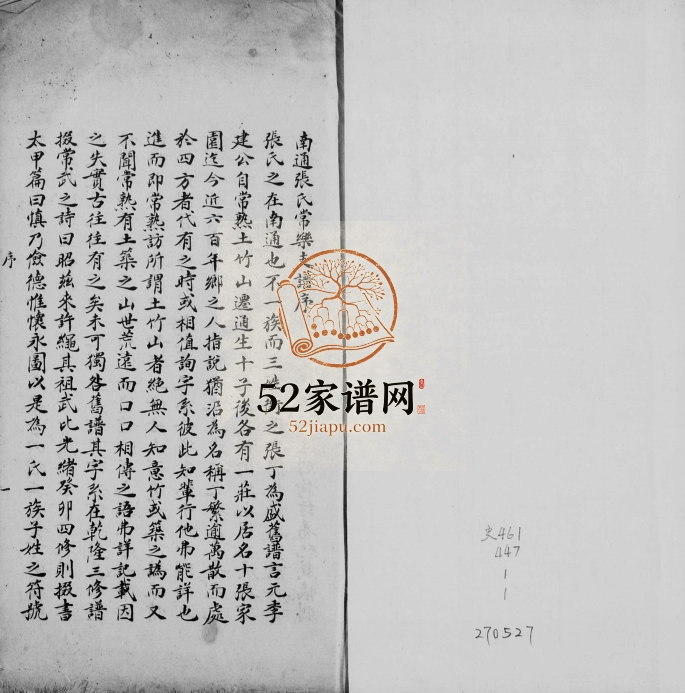 南通張氏常樂支譜序
張氏之在南通也不一族而三 之張丁為盛舊譜言元季
建公自常熟土竹山遷通生十子後各有一莊以居名十張家
園迄今近六百年鄉之人指說猶沿為名稱丁繁逾萬散而處
於四方者代有之時或相值詢字系彼此知輩行他弗能詳也
進而即常熟訪所謂土竹山者絕無人知意竹或築之譌而又
不聞常熟有土築之山世荒遠而口口相傳之語弗詳記載因
之失實古往往有之矣未可獨咎舊譜其字系在乾隆三修譜
掇常武之詩曰昭茲來許繩其祖武比光緒癸卯四修則掇書
太甲篇曰慎乃儉德惟懷永圖以是為一氏一族子姓之符號
序
一
52家谱网
52jiapu.com
史461
447
1
1
270527